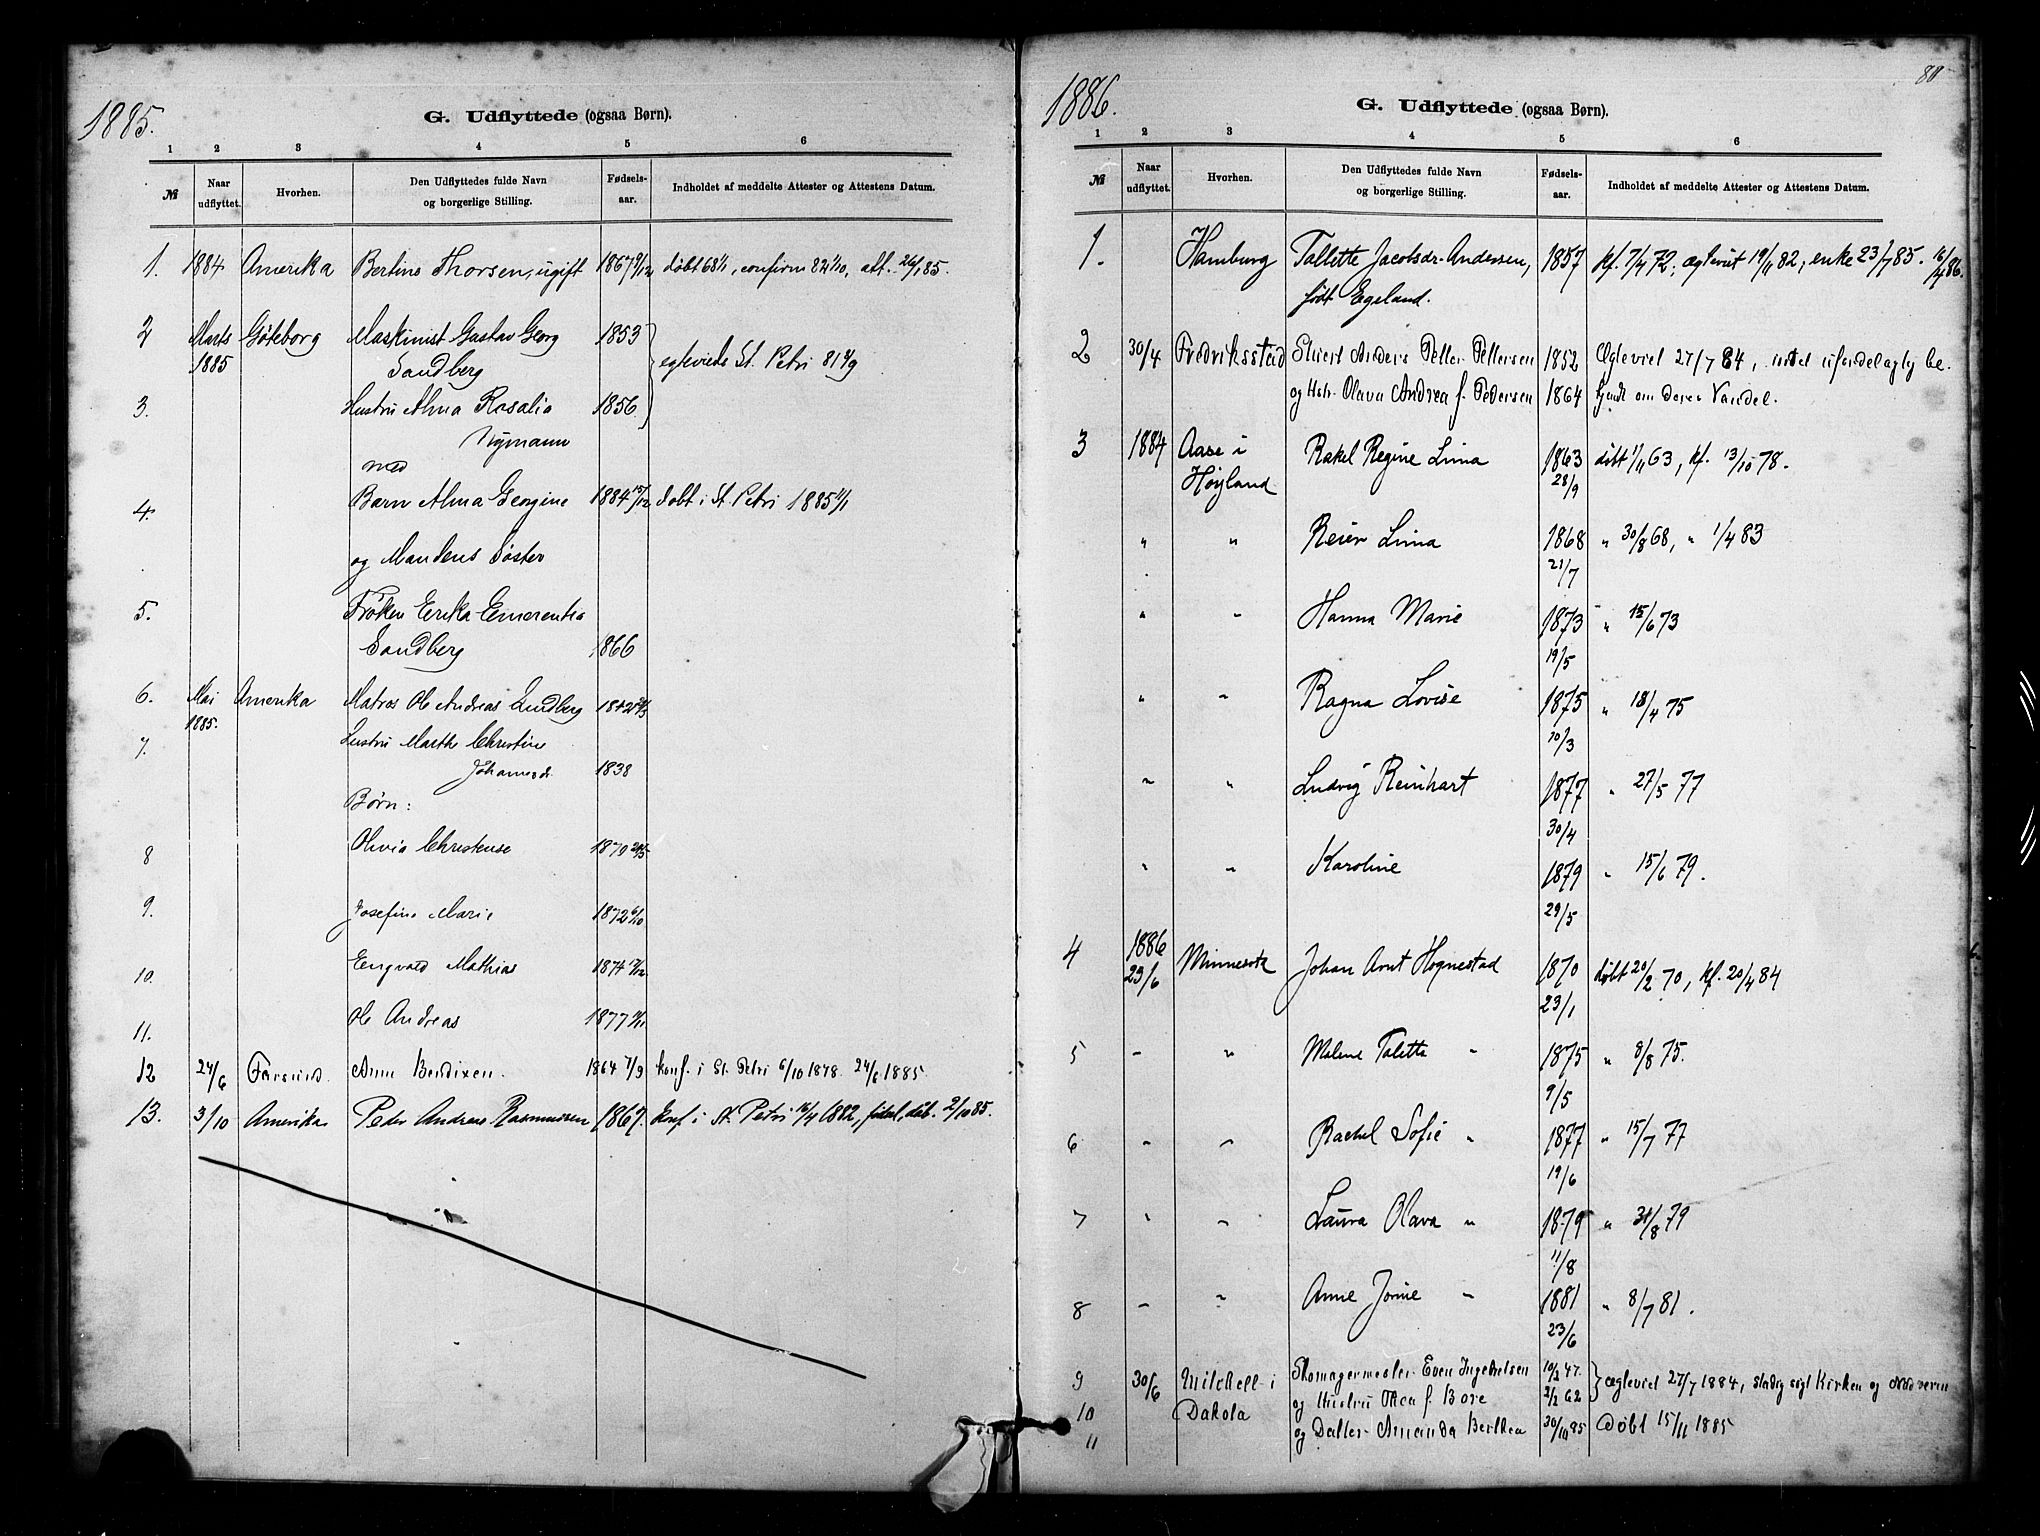 1885.
G. Udflyttede (ogsaa Børn).
1 2 3 4 5 6
№ Naar udflyttet. Hvorhen. Den Udflyttedes fulde Navn og borgerlige Stilling. Fødsels-aar. Indholdet af meddelte Attester og Attestens Datum.
1. 1884 Amerika Bertine Thorsen, ugift 1867 døbt 68, confirm 82 4/10, att. 85.
2 Marts Göteborg Maskinist Gustav Georg 1853
1885 Sandberg egteviede St. Petri 81
3. Hustru Alma Rosalia 1856
Nymann
med
4. Barn Alma Georgine 1884 15/12 døbt i St. Petri 1885
og Mandens Søster
5. Frøken Erika Emerentia
Sandberg 1866
6. Mai Amerika Matros Ole Andreas Lindberg 1842
1885.
7. Hustru Marthe Christine
Johannesdr. 1838
Børn:
8 Olivia Christense 1870
9. Josefine Marie 1872 6/10
10. Engvald Mathias 1874
11. Ole Andreas 1877
12 24/6 Farsund. Anne Bendixen. 1864 7/9 konf. i St. Petri 6/10 1878. 24/6 1885.
13. 3/10 Amerika Peder Andreas Rasmussen 1867. konf i St. Petri 16/4 1882, døb. 2/10 85.
1886.
80
G. Udflyttede (ogsaa Børn).
1 2 3 4 5 6
№ Naar udflyttet. Hvorhen. Den Udflyttedes fulde Navn og borgerlige Stilling. Fødsels-aar. Indholdet af meddelte Attester og Attestens Datum.
1. Hamburg Tallette Jacobsdr. Andersen, 1857 kf. 7/4 72; egteviet 19/11 82, enke 23/7 85. 16/4 86.
født Egeland.
2 30/4 Fredriksstad Anders Petter Pettersen 1852 Ægteviet 27/7 84, intet ufordelagtig be-
og Hstr. Olava Andrea f. Pedersen 1864 kjendt om deres Vandel.
3 1884 Aase i Rakel Regine Lima 1863 døbt 1/11 63, kf. 13/10 78.
Høyland 28/9
" " Reier Lima 1868 " 30/8 68, " 1/4 83
21/7
" " Hanna Marie 1873 " 15/6 73
19/5
" " Ragna Lovise 1875 " 18/4 75
10/3
" " Ludvig Reinhart 1877 " 27/5 77
30/4
" " Karoline 1879 " 15/6 79.
29/5
4 1886 Minnesota Johan Arnt Hognestad 1870 døbt 20/2 70, kf. 20/4 84
29/6 23/1
5 - " Malene Talette " 1875 " 8/8 75.
9/5
6 - " Rachel Sofie " 1877 " 15/7 77
19/6
7 " " Laura Olava " 1879 " 31/8 79
11/8
8 - " Anne Jorine " 1881 " 8/7 81.
23/6
9 30/6 Mitchell i Skomagermester Even Ingebretsen 10/2 47. ægteviet 27/7 1884, stadig søgt Kirken og
10 Dakota og Hustru Thea f. Bore 2/2 62
11 og Datter Amanda Berthea 30/10 85 Døbt 15/11 1885